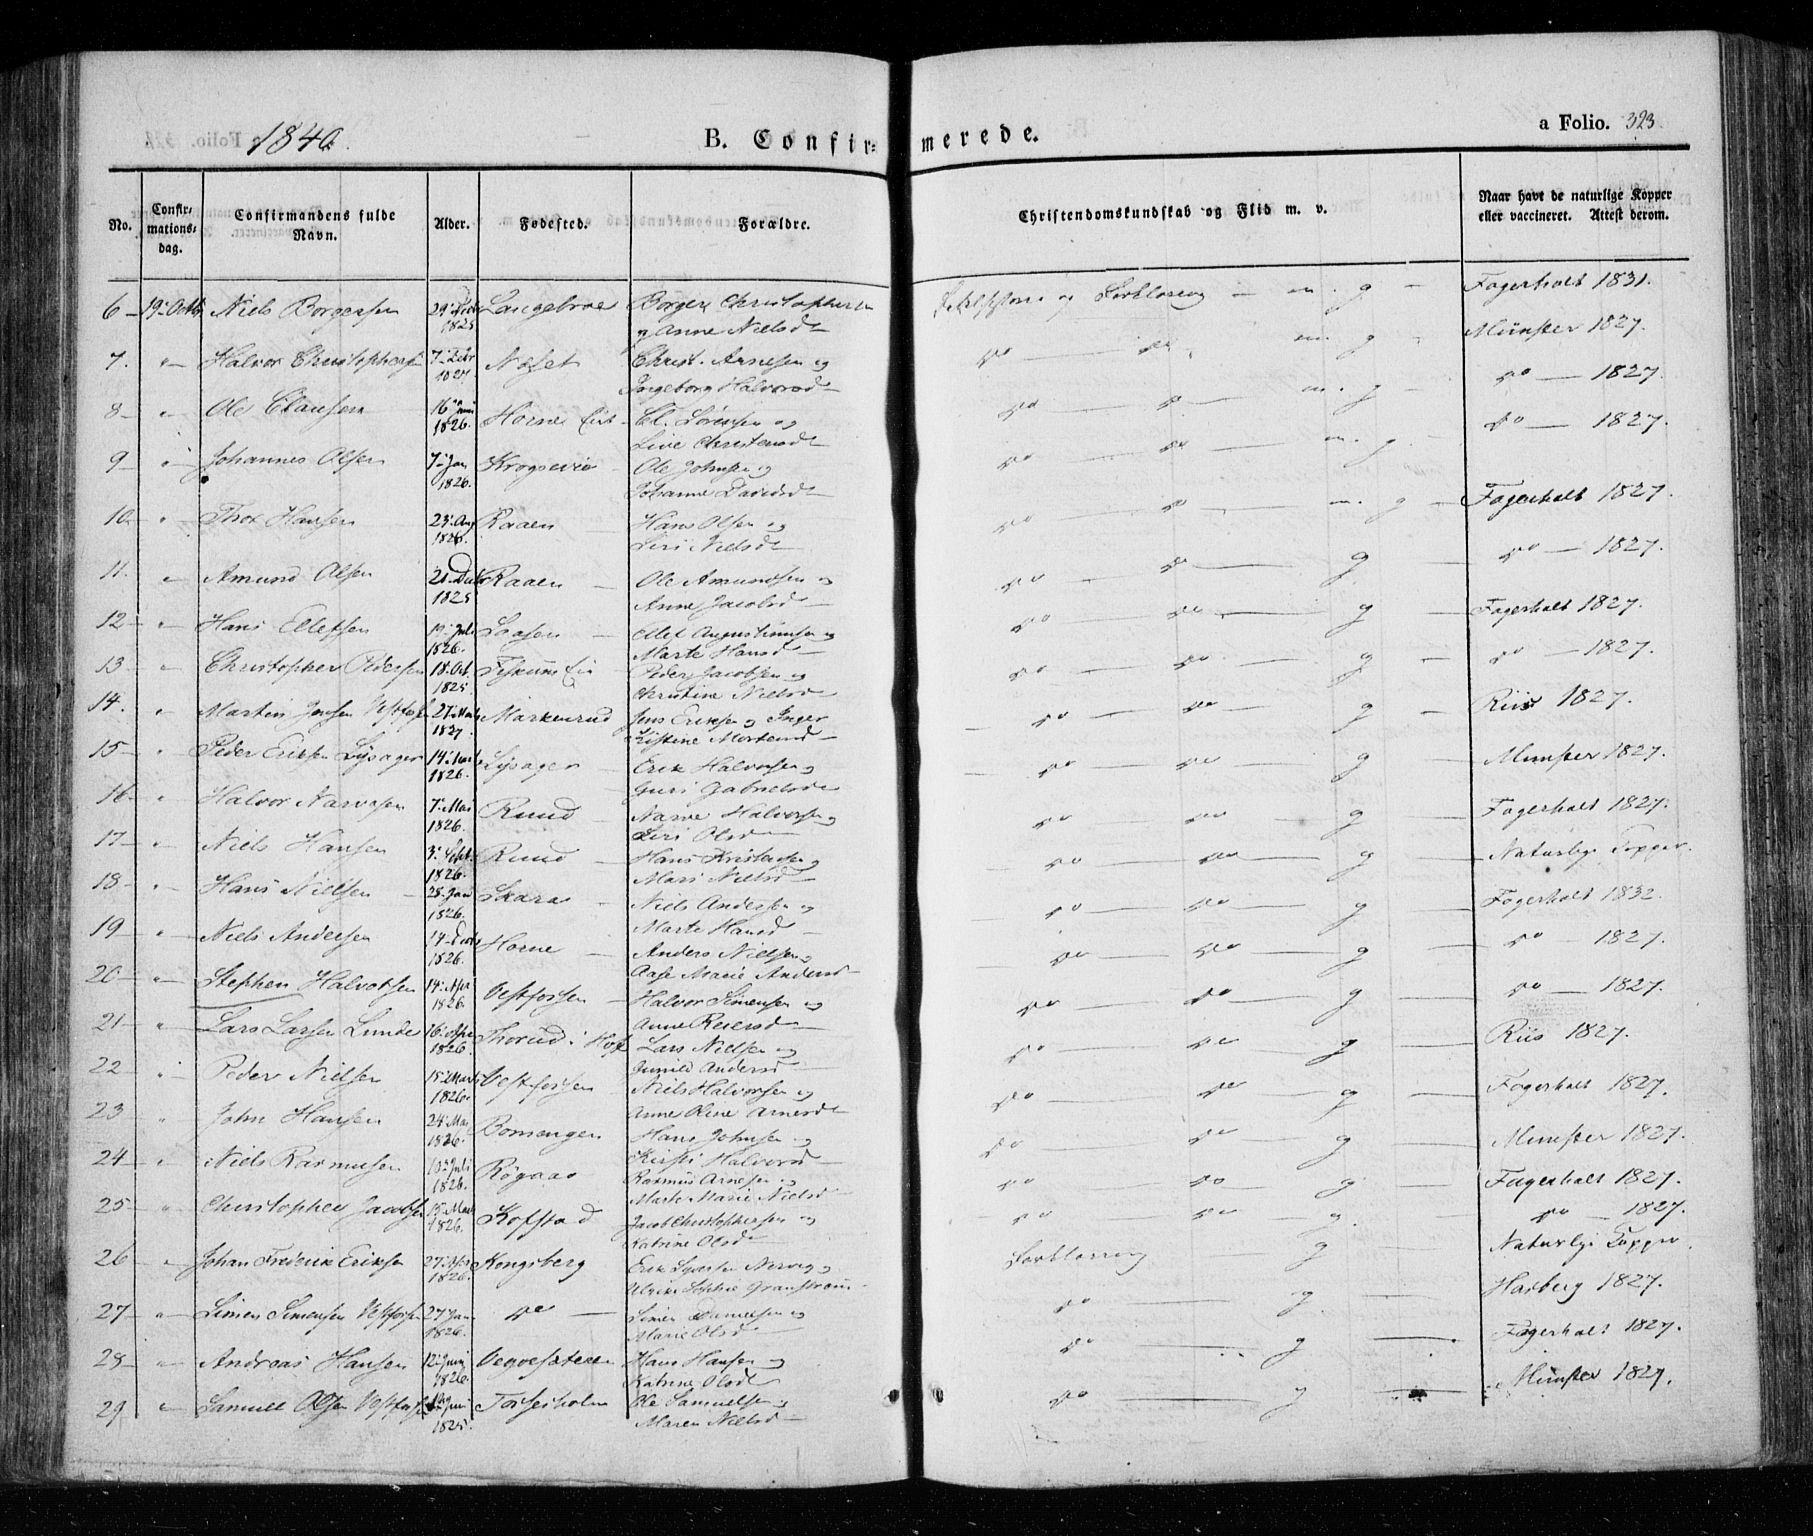 1840.
B. Confir=merede.
a Folio. 323.
No. | Confirmationsdag. | Confirmandens fulde Navn. | Alder. | Fødested. | Forældre. | Christendomskundskab og Flid m. v. | Naar havt de naturlige Kopper eller vaccineret. Attest derom.
6 – 19. Octb Niels Borgersen 1825 Langebroe Borger Christophersen og Anne Nielsd – m. g – Fagerholt 1831.
7. " Halvor Christophersen 7. Febr 1827 Næset Christ. Arnesen og Ingeborg Halvorsd – do – do m. g Münster 1827.
8 – " Ole Clausen 16 Juni 1826. Horne Eie Cl. Sørensen og Live Christensd – do – do – m. g – do – 1827.
9 " Johannes Olsen 7. Jan 1826. Krogsevie Ole Johnsen og Johanne Davidsd – do – do – m. g. do – 1827.
10. " Thor Hansen 23. Aug 1826. Raaen – Hans Olsen og Siri Nielsd – do – do – m. g – Fagerholt 1827.
11. " Amund Olsen 21. Dec 1825 Raaen – Ole Amundsen og Anne Jacobsd – do – do – g do – 1827.
12 – " Hans Ellefsen 19. Juli 1826. Laasen – Ellef Augustinusen og Marte Hansd – do – do – g – Fagerholt 1827.
13 – " Christopher Pedersen 18. Oct. 1825 Fiskum Eie Peder Jacobsen og Christine Nielsd do – do – g – do – 1827.
14. " Martin Jensen Vestfossen 27. Mart 1827. Markerud Jens Eriksen og Inger Kistine Mortensd do – do – g – Riis 1827.
15 – " Peder Eriksen Lysager 14. Mart 1826. Lysager – Erik Halvorsen og Guri Gabrielsd – do – do – g Münster 1827.
16 " Halvor Narvesen 7. Mai 1826. Ruud – Narve Halvorsen og Siri Olsd – do – do – g Fagerholt 1827.
17 – " Niels Hansen 3. Sept. 1826. Ruud – Hans Kristensen og Mari Nielsd – do – do – g – Naturlige Kopper.
18 – " Hans Nielsen – 28. Jan 1826. Skara – Niels Andersen og Marte Hansd – do – do – g Fagerholt 1832.
19 " Niels Andersen 14. Dec 1826. Horne – Anders Nielsen og Aase Marie Andersd – do – do – g do – 1827.
20 – " Stephen Halvorsen 14. Apr 1826. Vestfossen – Halvor Simensen og Anne Reiersd – do – do – g do – 1827.
21 – " Lars Larsen Lunde 16. Apr 1826. Thorud i Hof Lars Nielsen og Gunild Andersd – do – do – g – Riis 1827.
22 – " Peder Nielsen 15. Mart 1826. Vestfossen Niels Halvorsen og Anne Oline Arnesd – do – do – g – Fagerholt 1827.
23 " John Hansen 24. Mai 1826. Bomengen Hans Johnsen og Kirsti Halvorsd – do – do – g Münster 1827.
24 – " Niels Rasmusen 10. Juli 1826. Røgaas Rasmus Arnesen og Marte Marie Nielsd do – do – g – Fagerholt 1827.
25 – " Christopher Jacobsen 15. Mart 1826. Kofstad Jacob Christophersen og Katrine Olsd – do – do – g. do – 1827.
26 – " Johan Frederik Eriksen 27. Apr 1826. Kongsberg Erik og Ulrike Sophie Granstrøm – g Naturlige Kopper.
27 – " Simen Simensen Vestfossen 27 Jan 1826. do – Simen Danielsen og Marie Olsd – do – g – Hasberg 1827.
28 – " Andreas Hansen 12. Juni 1826. Hans Hansen og Katrine Olsd do – g – Fagerholt 1827.
29 " Samuel Olsen Vestfossen 1825. Fossesholm Ole Samuelsen og Maren Nielsd – do – g – Münster 1827.